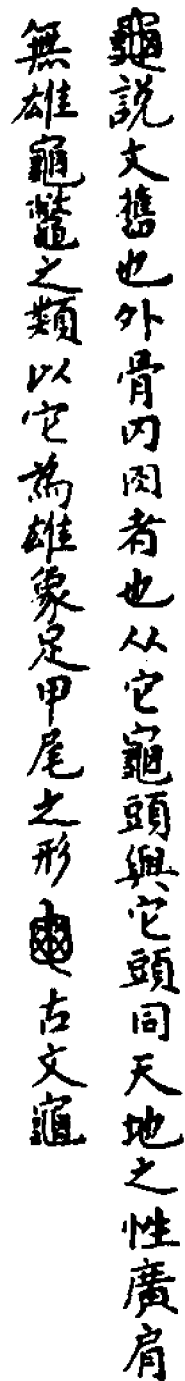 龜說文舊也外骨内肉者也从它龜頭與它頭同天地之性廣肩
無雄龜鱉之類以它為雄象足甲尾之形𠁴古文龜